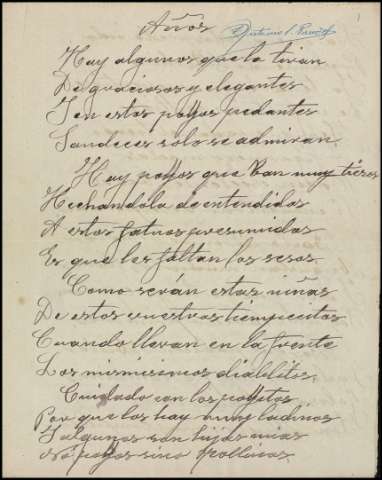 Años
Hay algunos que la tiran
De graciosos y elegantes
I en estos pollos pedantes
Sandeces solo se admiran.
Hay pollos que van muy tiesos
Hechandola de entendidos
A estos fatuos presumidos
Es que les faltan los sesos.
Como serán estas niñas
De estos vuestros tiempecitos
Cuando llevan en la frente
Los mismisimos diablitos.
Cuidado con los pollitos
Por que los hay muy ladinos
I algunos son hijas mias
No pollos sino pollinos.